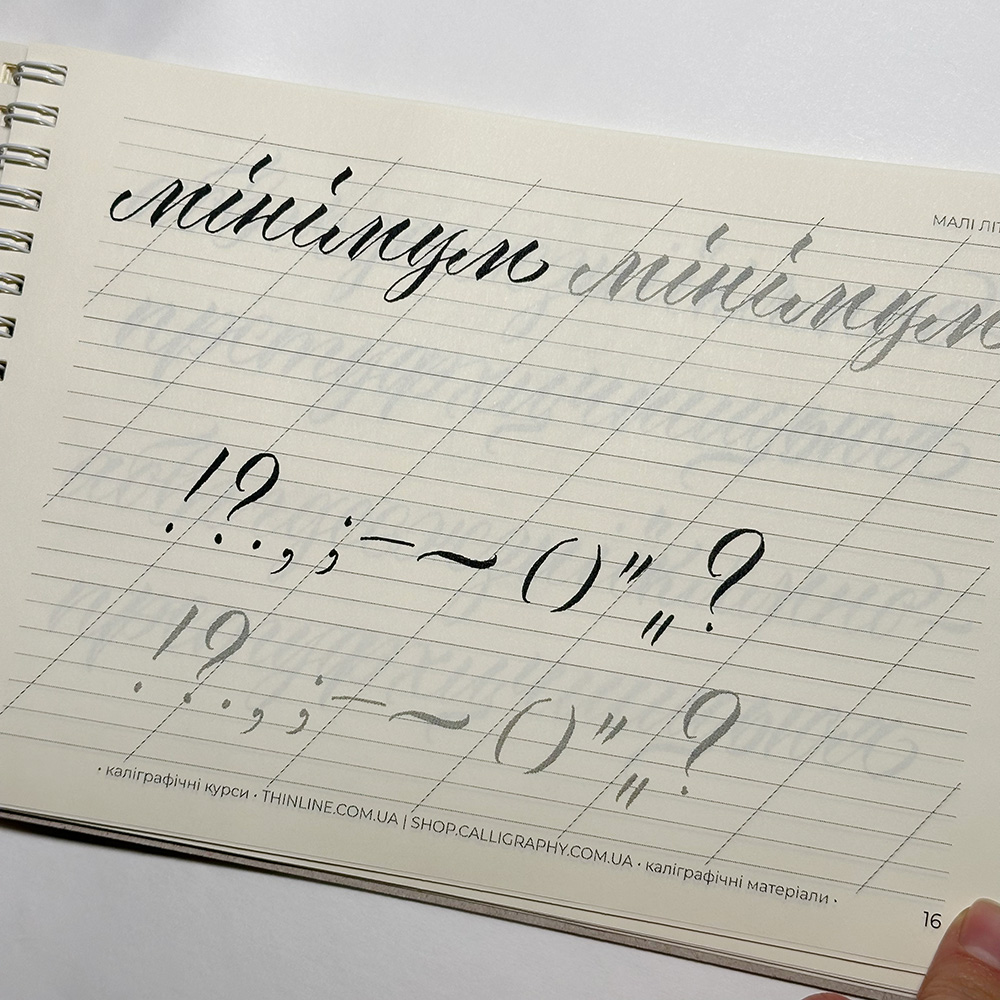 МАЛІ ЛІТ
мінімум мінімум
! ? . , ; – ~ ( ) " „ ?
! ? . , ; – ~ ( ) " „ ?
· каліграфічні курси · THINLINE.COM.UA | SHOP.CALLIGRAPHY.COM.UA · каліграфічні матеріали ·
16